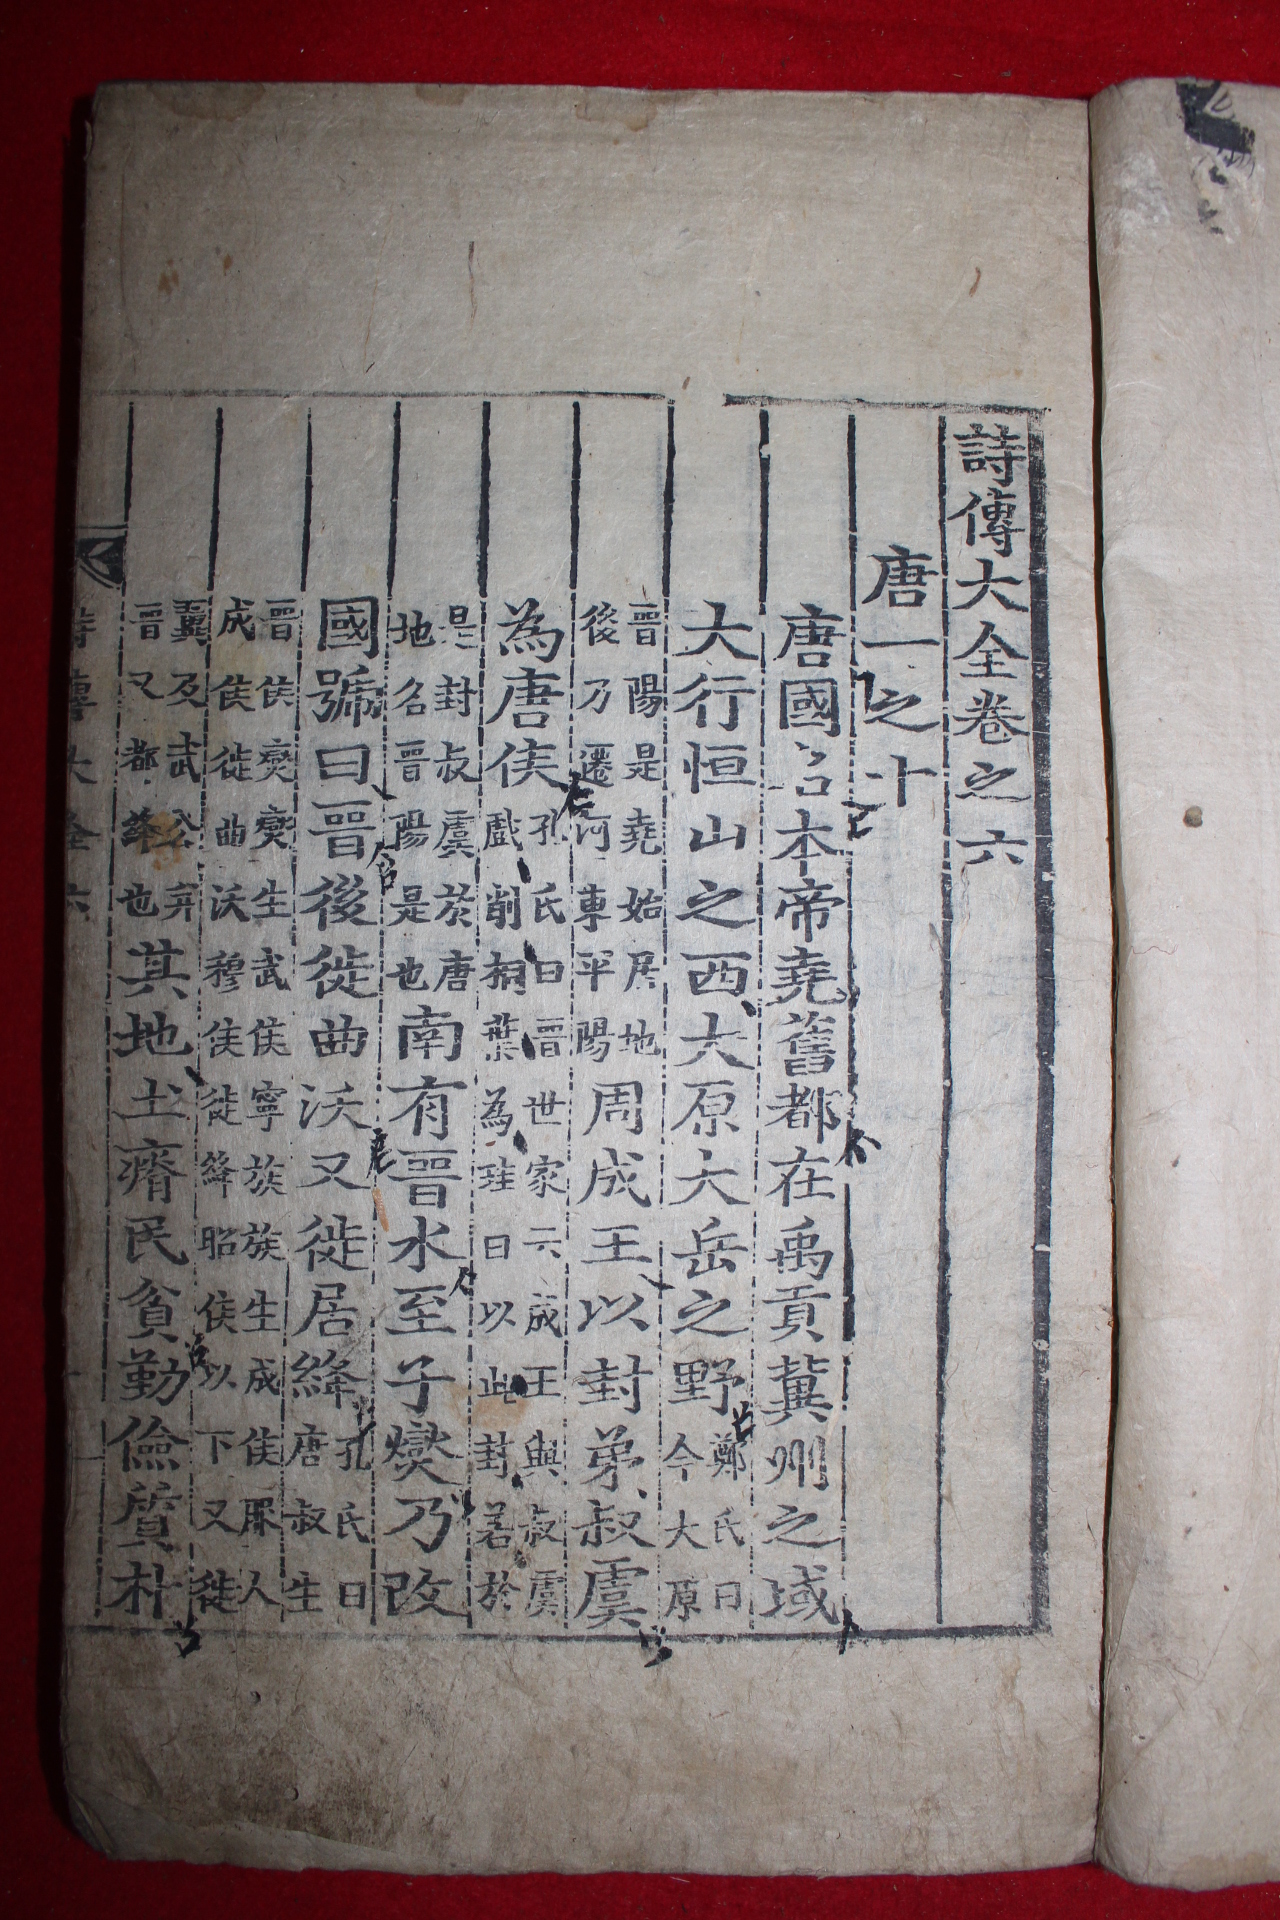 詩傳大全卷之六
唐一之十
唐國名本帝堯舊都在禹貢冀州之域
大行恒山之西大原大岳之野鄭氏曰今大原
晉陽是堯始居地後乃遷河東平陽周成王以封弟叔虞
為唐侯孔氏曰晉世家云成王與叔虞戲削桐葉為珪曰以此封若於
是封叔虞於唐地名晉陽是也南有晉水至子燮乃改
國號曰晉後徙曲沃又徙居絳孔氏曰唐叔生
晉侯燮燮生武侯寧族族生成侯服人成侯徙曲沃穆侯徙絳昭侯以下又徙
翼及武公幷晉又都絳也其地土瘠民貧勤儉質朴
詩傳大全六